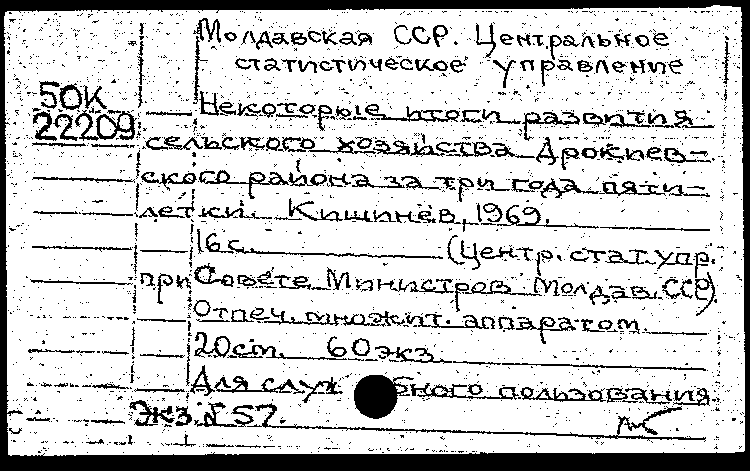 Молдавская ССР. Центральное
статистическое управление
50К
22209
Некоторые итоги развития
сельского хозяйства Дрокиев-
ского района за три года пяти-
летки. Кишинёв, 1969.
16 с. (Центр. стат. упр.
при Совете Министров Молдав. ССР)
Отпеч. множит. аппаратом.
20 cm. 60 экз.
Для служебного пользования
Экз. № 57.